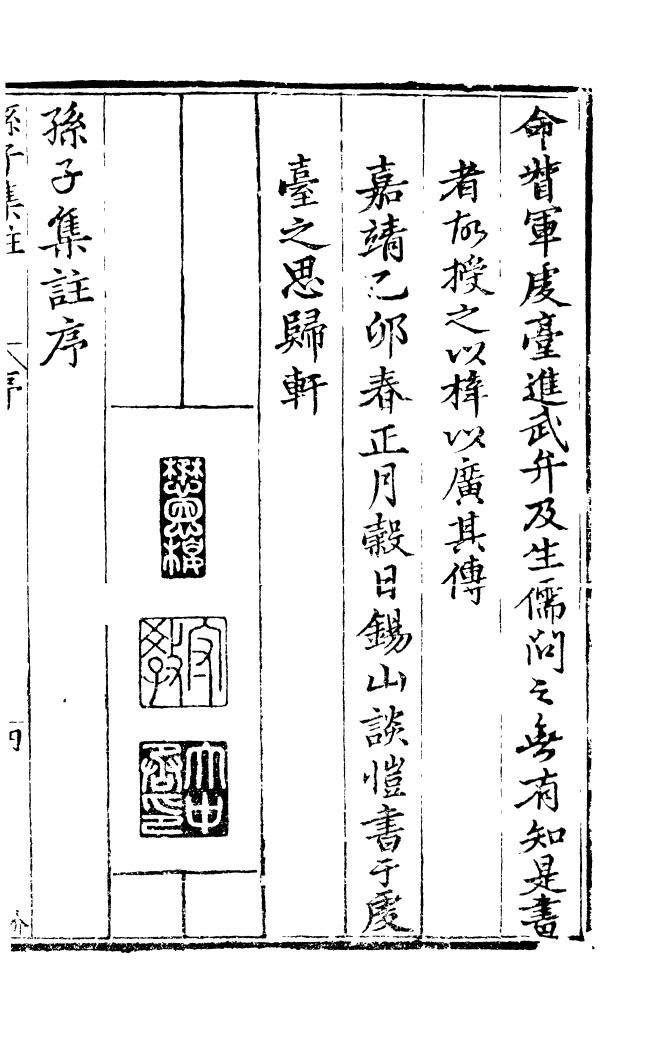 命督軍虔臺進武弁及生儒問之無有知是書
者故授之以梓以廣其傳
嘉靖乙卯春正月榖日錫山談愷書于虔
臺之思歸軒
孫子集註序
孫子集註
序
四